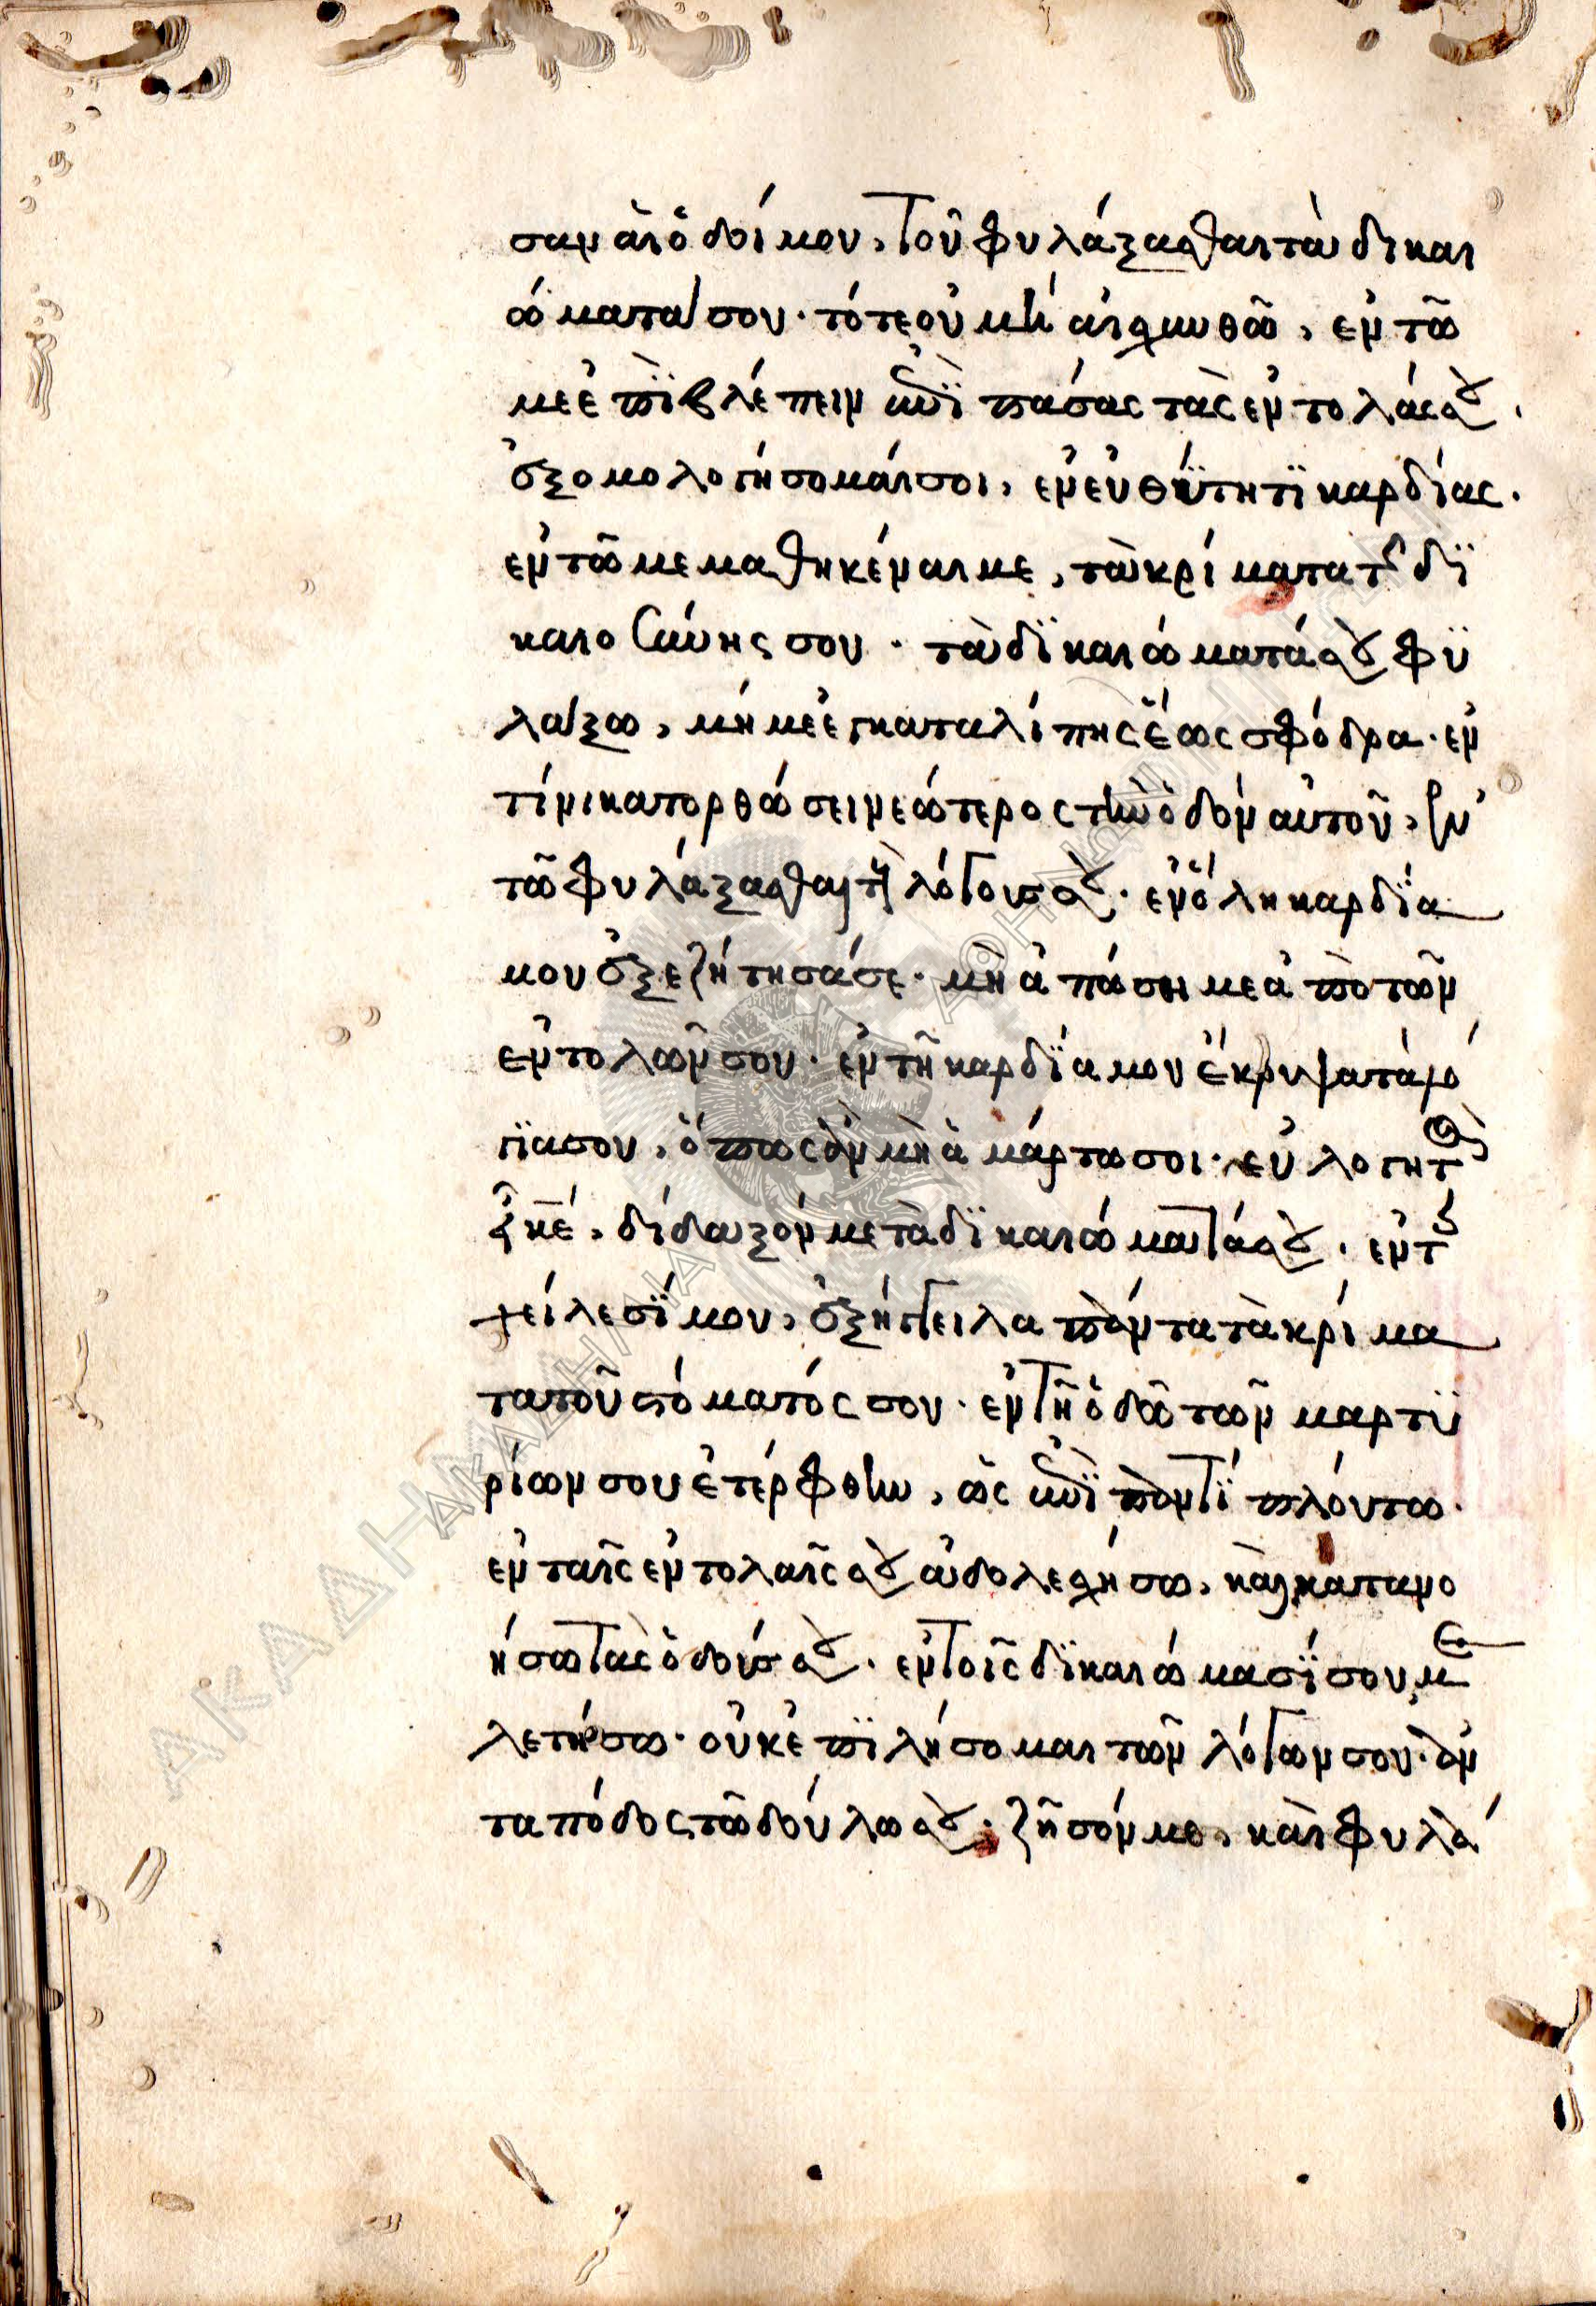 σαν αἱ ὁδοί μου, τοῦ φυλάξασθαι τὰ δικαι
ώματά σου· τότε οὐ μὴ αἰσχυνθῶ, ἐν τῶ
με ἐπϊβλέπειν ἐπὶ πάσας τὰς ἐντολάς σου,
ἐξομολογήσομαί σοι, ἐν εὐθύτητϊ καρδίας.
ἐν τῶ μεμαθηκέναι με, τὰ κρίματα τῆς δϊ
καιοσύνης σου· τὰ δϊκαιώματά σου φϋ
λάξω, μή με ἐγκαταλίπης ἕως σφόδρα· ἐν
τίνι κατορθώσει νεώτερος τὴν ὁδὸν αὐτοῦ, ἐν
τῶ φυλάξασθαι τοὺς λόγους σου· ἐν ὅλη καρδϊα
μου ἐξεζήτησά σε· μὴ ἀπώση με ἀπὸ τῶν
ἐντολῶν σου· ἐν τῆ καρδϊα μου ἔκρυψα τὰ λό
γϊα σου, ὅπως ἂν μὴ ἁμάρτω σοι· εὐλογητὸς
εἶ κε, δίδαξόν με τὰ δϊκαιώματά σου· ἐν τοῖς
χείλεσϊ μου, ἐξήγγειλα πάντα τὰ κρίμα
τα τοῦ στόματός σου· ἐν τῆ ὁδῶ τῶν μαρτϋ
ρίων σου ἐτέρφθην, ὡς ἐπὶ παντϊ πλούτω·
ἐν ταῖς ἐντολαῖς σου ἀδολεσχήσω, καὶ κατανο
ήσω τὰς ὁδούς σου· ἐν τοῖς δϊκαιώμασϊ σου με
λετήσω· οὐκ ἐπϊλήσομαι τῶν λόγων σου· ἀν
ταπόδος τῶ δούλω σου· ζῆσόν με, καὶ φυλά
ΑΚΑΔΗΜΙΑ ΑΘΗΝΩΝ